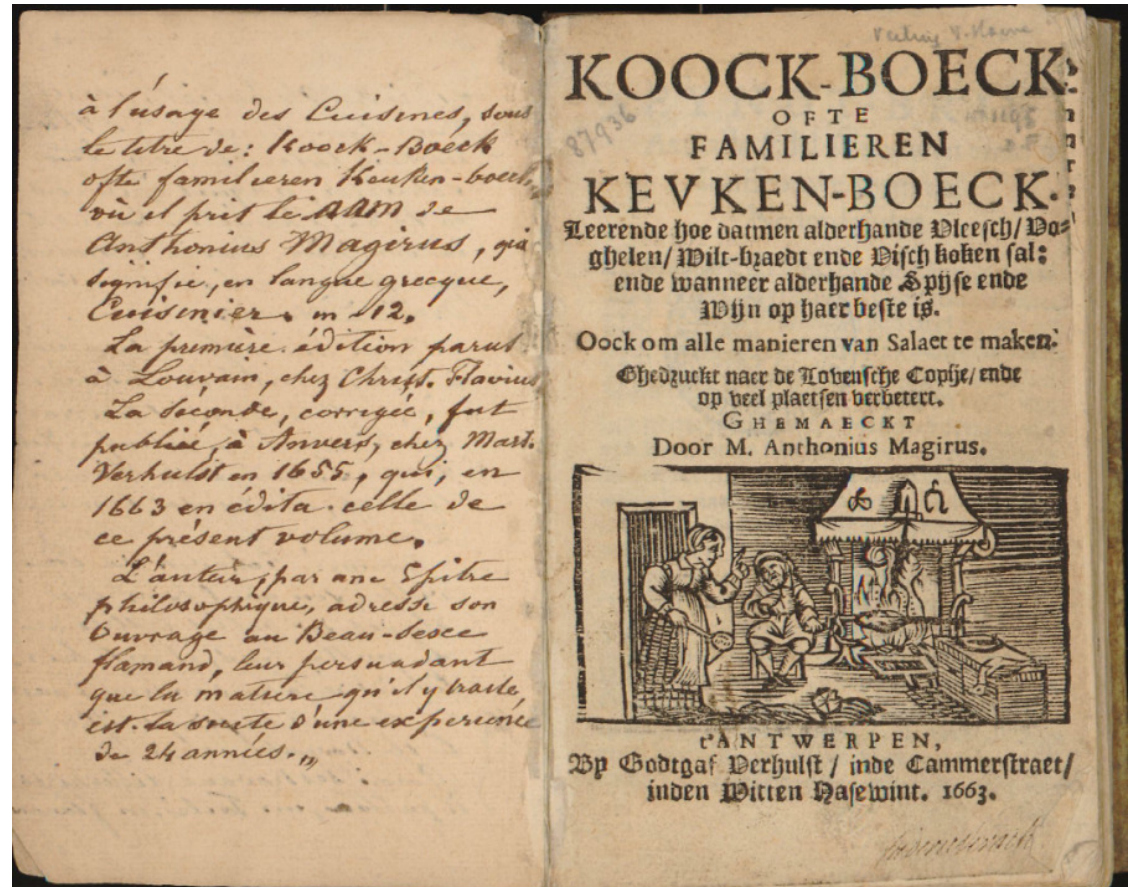 à l'úsage des Cuisines, sous
le titre de: Koock-Boeck
ofte familieren Keuken-boeck,
où il prit le nom de
Anthonius Magirus, qui
signifie, en langue grecque,
Cuisinier. in 12.
La première édition parut
à Louvain, chez Christ. Flavius
La séconde, corrigée, fut
publiée, à Anvers, chez Mart.
Verhulst en 1655, qui, en
1663 en édita celle de
ce présent volume.
L'auteur, par une Epitre
philosophique, adresse son
Ouvrage au Beau-Sexe
flamand, leur persuadant
que la matière qu'il y traite
est la suite d'une experience
de 24 années.„
87936
KOOCK-BOECK
OFTE
FAMILIEREN
KEVKEN-BOECK.
Leerende hoe datmen alderhande Vleesch/ Vo-
ghelen/ Wilt-braedt ende Visch koken sal:
ende wanneer alderhande Spijse ende
Wijn op haer beste is.
Oock om alle manieren van Salaet te maken.
Ghedruckt naer de Lovensche Copije/ ende
op veel plaetsen verbetert.
GHEMAECKT
Door M. Anthonius Magirus.
t'ANTWERPEN,
By Godtgaf Verhulst / inde Cammerstraet/
inden Witten Hasewint. 1663.